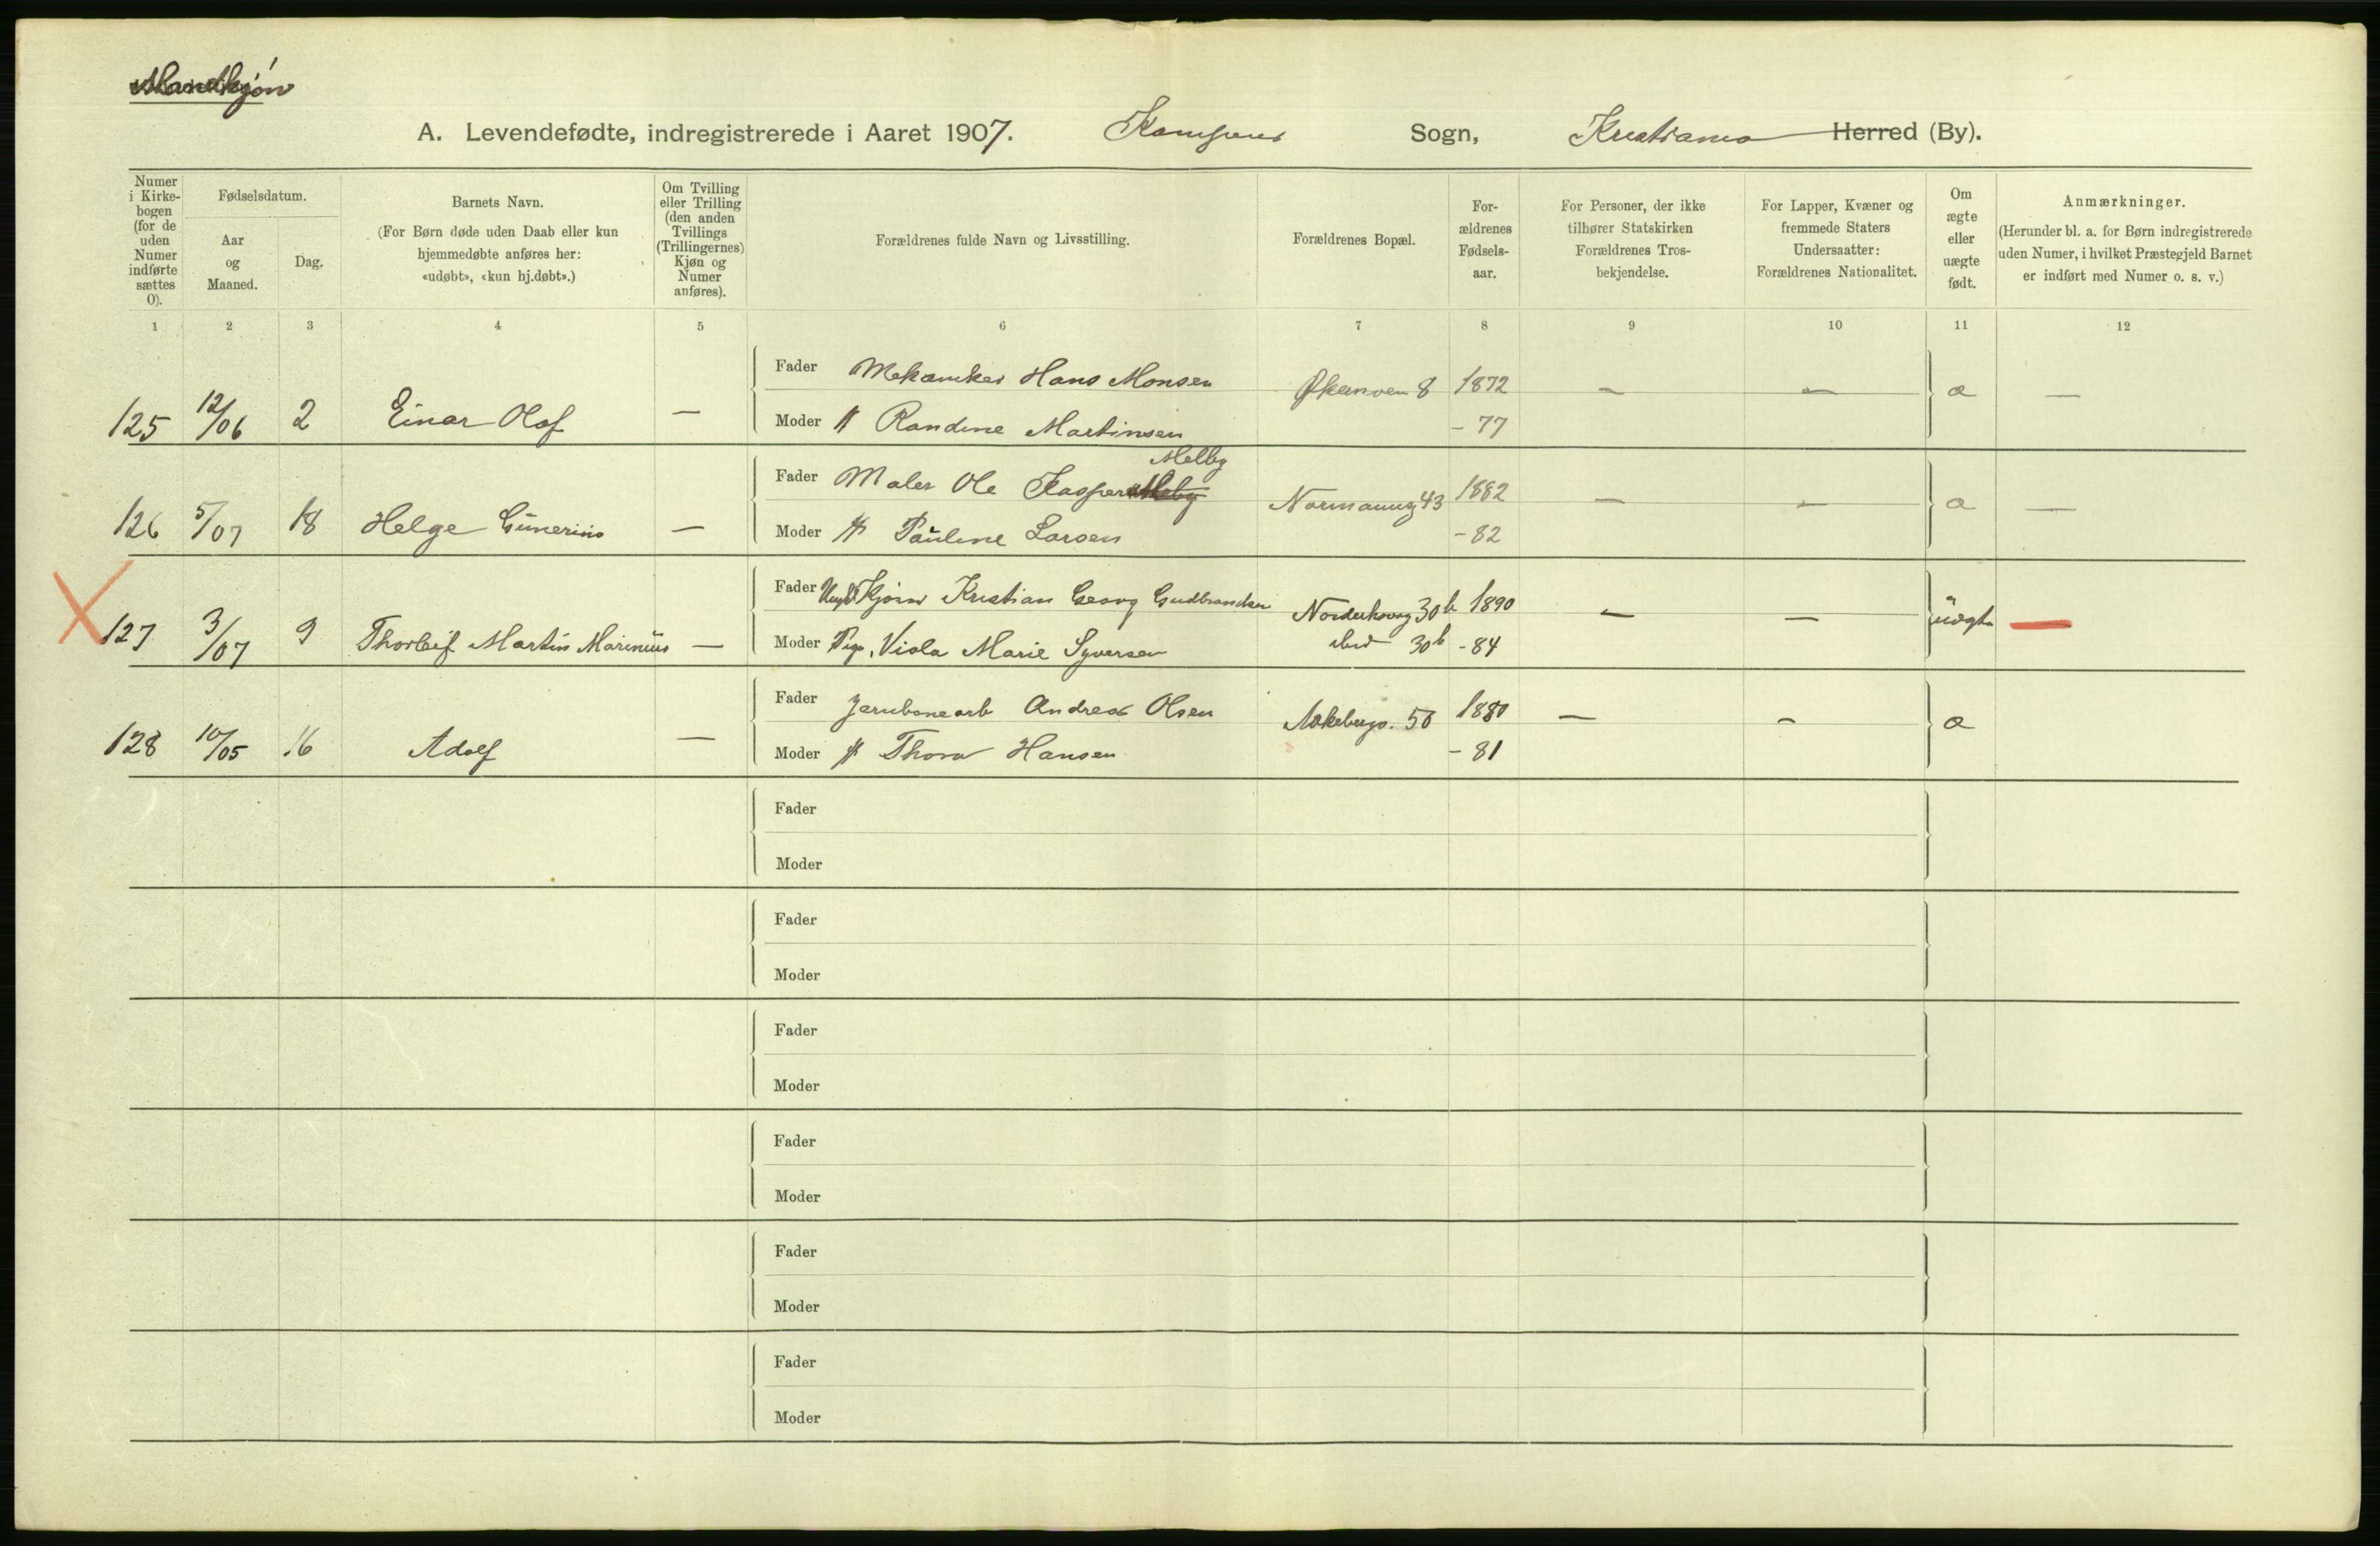 Mandkjøn
A. Levendefødte, indregistrerede i Aaret 1907. Kampens Sogn, Kristiania Herred (By).
Numer i Kirkebogen (for de uden Numer indførte sættes 0).
Fødselsdatum.
Aar og Maaned.
Dag.
Barnets Navn.
(For Børn døde uden Daab eller kun hjemmedøbte anføres her: «udøbt», «kun hj.døbt».)
Om Tvilling eller Trilling (den anden Tvillings (Trillingernes) Kjøn og Numer anføres).
Forældrenes fulde Navn og Livsstilling.
Forældrenes Bopæl.
For-ældrenes Fødsels-aar.
For Personer, der ikke tilhører Statskirken Forældrenes Tros-bekjendelse.
For Lapper, Kvæner og fremmede Staters Undersaatter: Forældrenes Nationalitet.
Om ægte eller uægte født.
Anmærkninger.
(Herunder bl. a. for Børn indregistrerede uden Numer, i hvilket Præstegjeld Barnet er indført med Numer o. s. v.)
1 2 3 4 5 6 7 8 9 10 11 12
Fader Mekaniker Hans Monsen Økernven 8 1872 — — æ —
125 12/06 2 Einar Olaf — Moder H Randine Martinsen - 77
Melby
Fader Maler Ole Kaspers Normanng 43 1882 — — æ —
126 5/07 18 Helge Gunerius — Moder H Pauline Larsen - 82
Fader Ungk Kjører Kristian Georg Gudbrandsen Norderhovsg 30b 1890 — — uægte —
127 3/07 9 Thorleif Martin Marinius — Moder Pige, Viola Marie Syversen ibid 30b - 84
Fader Jernbanearb Andreas Olsen Aakebergv. 50 1880 — — æ
128 10/05 16 Adolf — Moder H Thora Hansen - 81
Fader
Moder
Fader
Moder
Fader
Moder
Fader
Moder
Fader
Moder
Fader
Moder